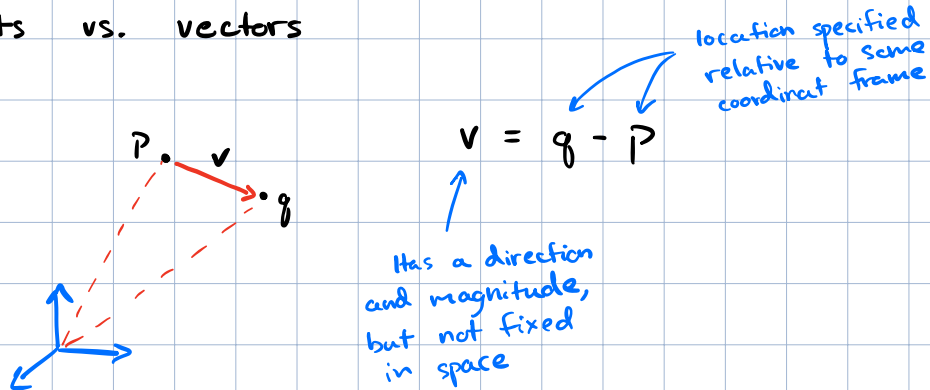 ts vs. vectors
location specified
relative to some
coordinat frame
P
v
q
v = q - P
Has a direction
and magnitude,
but not fixed
in space